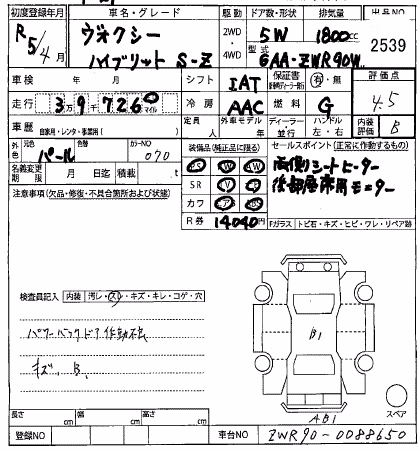 初度登録年月 車名・グレード 駆動 ドア数・形状 排気量 出品NO
R5/4月 ヴォクシー 2WD 5W 1800cc 2539
ハイブリット S-Z 4WD 型式 6AA-ZWR90W
車検 年 月 シフト IAT 保証書 有・無 評価点
走行 39726.0 マイル 冷房 AAC 燃料 G 4.5
車歴 自家用・レンタ・事業用( ) 定員 人 外車モデル 年 ディーラー 並行 ハンドル 左・右 内装評価 B
外色 元色 パール 色替 カラーNO 070 装備品(純正品に限る) セールスポイント(正常に作動するもの)
名義変更期限 月 日迄 積載 t PS PW 両側シートヒーター
注意事項(欠品・修復・不具合箇所および状態) SR ナビ TV 後部座席用モニター
カワ エアB ABS
R券 14040円 Fガラス トビ石・キズ・ヒビ・ワレ・リペア跡
検査員記入 内装 汚レ・スレ・キズ・キレ・コゲ・穴
パワーバックドア作動不良
キズ、B、
B1
AB1
スペア
長さ cm 幅 cm 高さ cm
登録NO 車台NO ZWR90-0088650